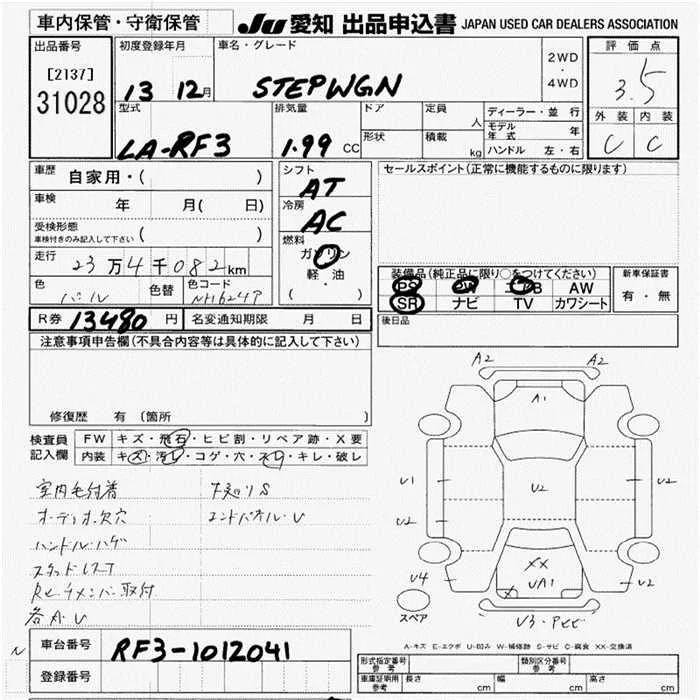 車内保管・守衛保管
JU 愛知 出品申込書 JAPAN USED CAR DEALERS ASSOCIATION
出品番号
[2137]
31028
初度登録年月
13 12月
車名・グレード
STEPWGN
2WD
・
4WD
評価点
3.5
外装 内装
C C
型式
LA-RF3
排気量
1.99 CC
ドア
形状
定員
人
積載
kg
ディーラー・並行
モデル年式 年
ハンドル 左・右
車歴 自家用・( )
車検 年 月( 日)
受検形態
車検付きのみ記入して下さい ( )
走行 23万4千082km
色 パール 色替 色コード NH624P
R券 13480 円 名変通知期限 月 日
シフト AT
冷房 AC
燃料
ガソリン
軽・油
( )
セールスポイント(正常に機能するものに限ります)
装備品(純正品に限り○をつけてください)
PS PW エアB AW
SR ナビ TV カワシート
新車保証書
有・無
後日品
注意事項申告欄(不具合内容等は具体的に記入して下さい)
修復歴 有 (箇所
検査員記入欄
FW キズ・飛石・ヒビ割・リペア跡・X要
内装 キズ・汚レ・コゲ・穴・スレ・キレ・破レ
室内毛付着
オーディオ欠穴 エンドパネル・U
ハンドル・ハゲ
スタッドレスT
Rヒッチメンバー取付
各A・U
A2 A2
A1
U1 U2
U2
XX
UA1
U4 U2
U3・PヒビU
スペア
A-キズ E-エクボ U-凹み W-補修跡 S-サビ C-腐食 XX-交換済
車台番号 RF3-1012041
N
登録番号
形式指定番号 参考 類別区分番号 参考
車庫証明用 参考 長さ cm 幅 cm 高さ cm